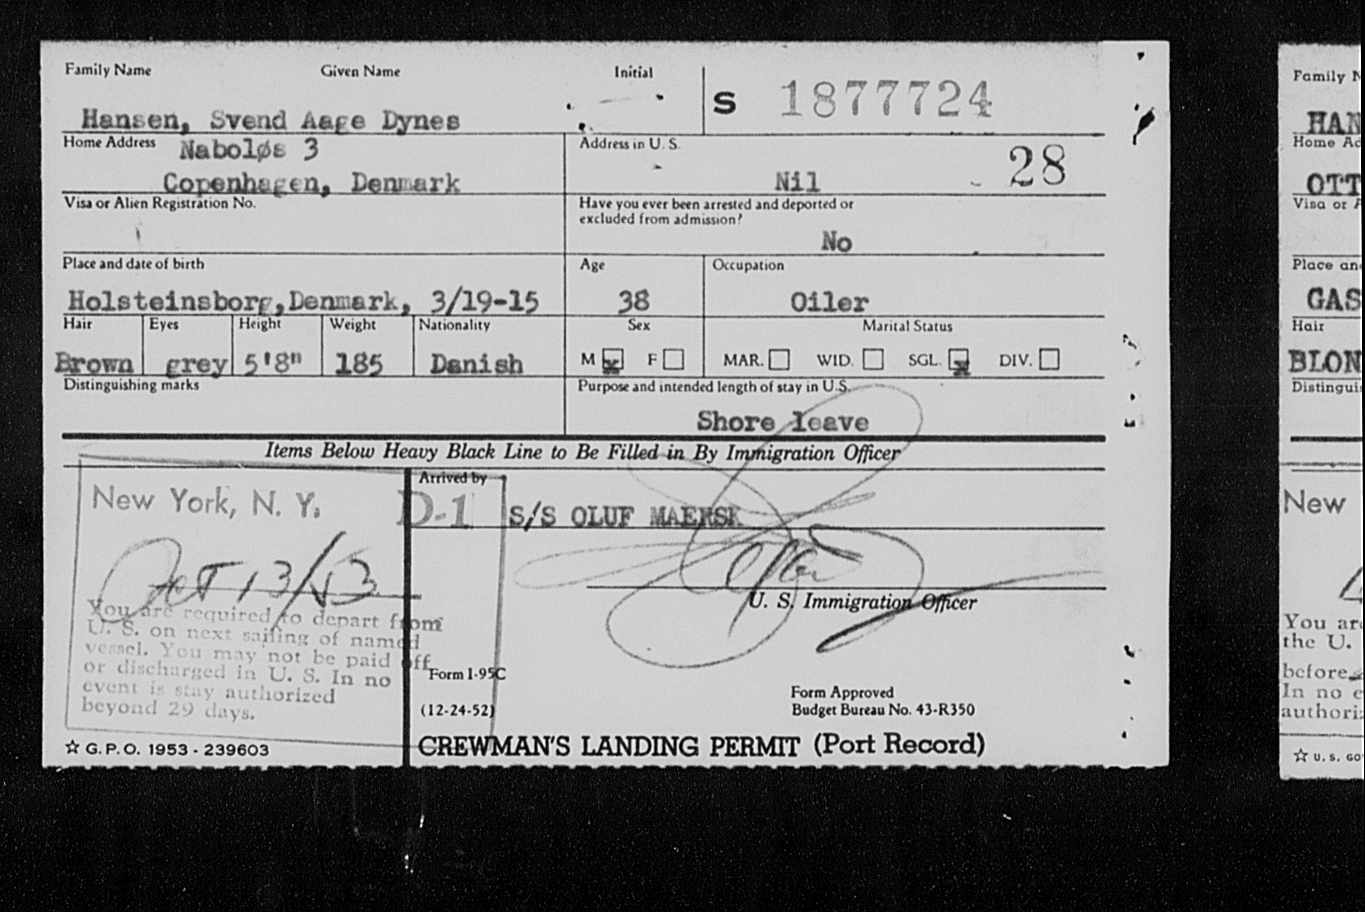 Family Name Given Name Initial
S 1877724
Hansen, Svend Aage Dynes
Home Address Naboløs 3
Copenhagen, Denmark
Address in U. S.
Nil
28
Visa or Alien Registration No.
Have you ever been arrested and deported or
excluded from admission?
No
Place and date of birth
Holsteinsborg, Denmark, 3/19-15
Age
38
Occupation
Oiler
Hair Eyes Height Weight Nationality
Brown grey 5'8" 185 Danish
Sex
M x F
Marital Status
MAR. WID. SGL. x DIV.
Distinguishing marks
Purpose and intended length of stay in U.S.
Shore leave
Items Below Heavy Black Line to Be Filled in By Immigration Officer
New York, N. Y.
Oct 13/53
You are required to depart from
U. S. on next sailing of named
vessel. You may not be paid off
or discharged in U. S. In no
event is stay authorized
beyond 29 days.
☆ G.P.O. 1953 - 239603
Arrived by
D-1 S/S OLUF MAERSK
U. S. Immigration Officer
Form I-95C
(12-24-52)
Form Approved
Budget Bureau No. 43-R350
CREWMAN'S LANDING PERMIT (Port Record)
Family N
HAN
Home Ad
OTT
Visa or A
Place an
GAS
Hair
BLON
Distingui
New
You are
the U.
before
In no e
authoriz
☆ U. S. GO